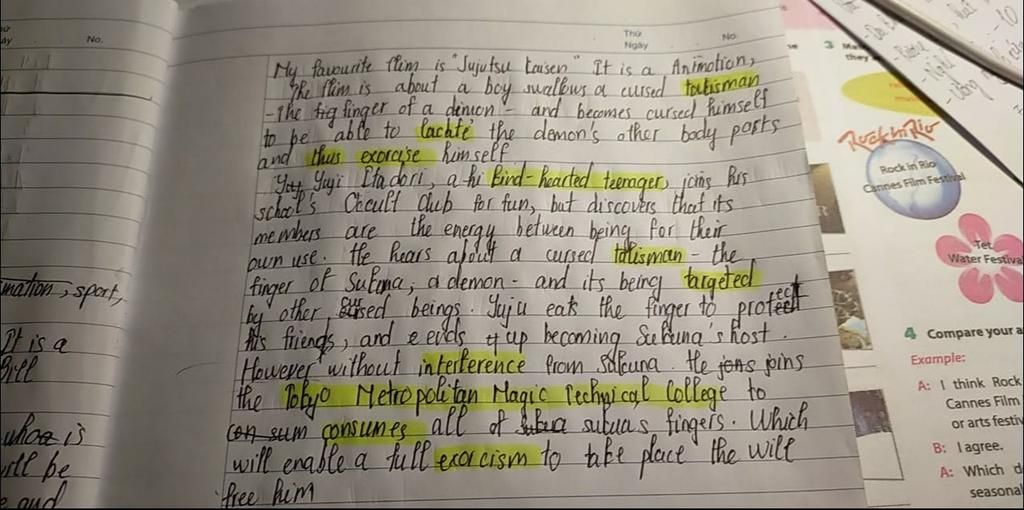 Thứ
Ngày
No.
No.
My favourite flim is "Jujutsu kaisen" It is a Animotion,
The flim is about a boy swallows a cursed talisman
- the finger of a demon - and becomes cursed himself
to be able to lachte the demon's other body parts
and thus exorcise himself
Yuji Itadori, a kind-hearted teenager, joins his
school's Occult Club for fun, but discovers that its
members are the energy between being for their
own use. He hears about a cursed talisman - the
finger of Sukuna, a demon - and its being targeted
by other cursed beings. Yuju eats the finger to protect
his friends, and ends up becoming Sukuna's host.
However without interference from Sakuna. He joins
the Tokyo Metropolitan Magic Technical College to
consumes all of sukuas fingers. Which
will enable a full exorcism to take place the will
free him
mation, sport,
It is a
who is
will be
and
3
they
Rock in Rio
Rock in Rio
Cannes Film Festival
Tet
Water Festival
4 Compare your a
Example:
A: I think Rock
Cannes Film
or arts festiv
B: I agree.
A: Which d
seasonal